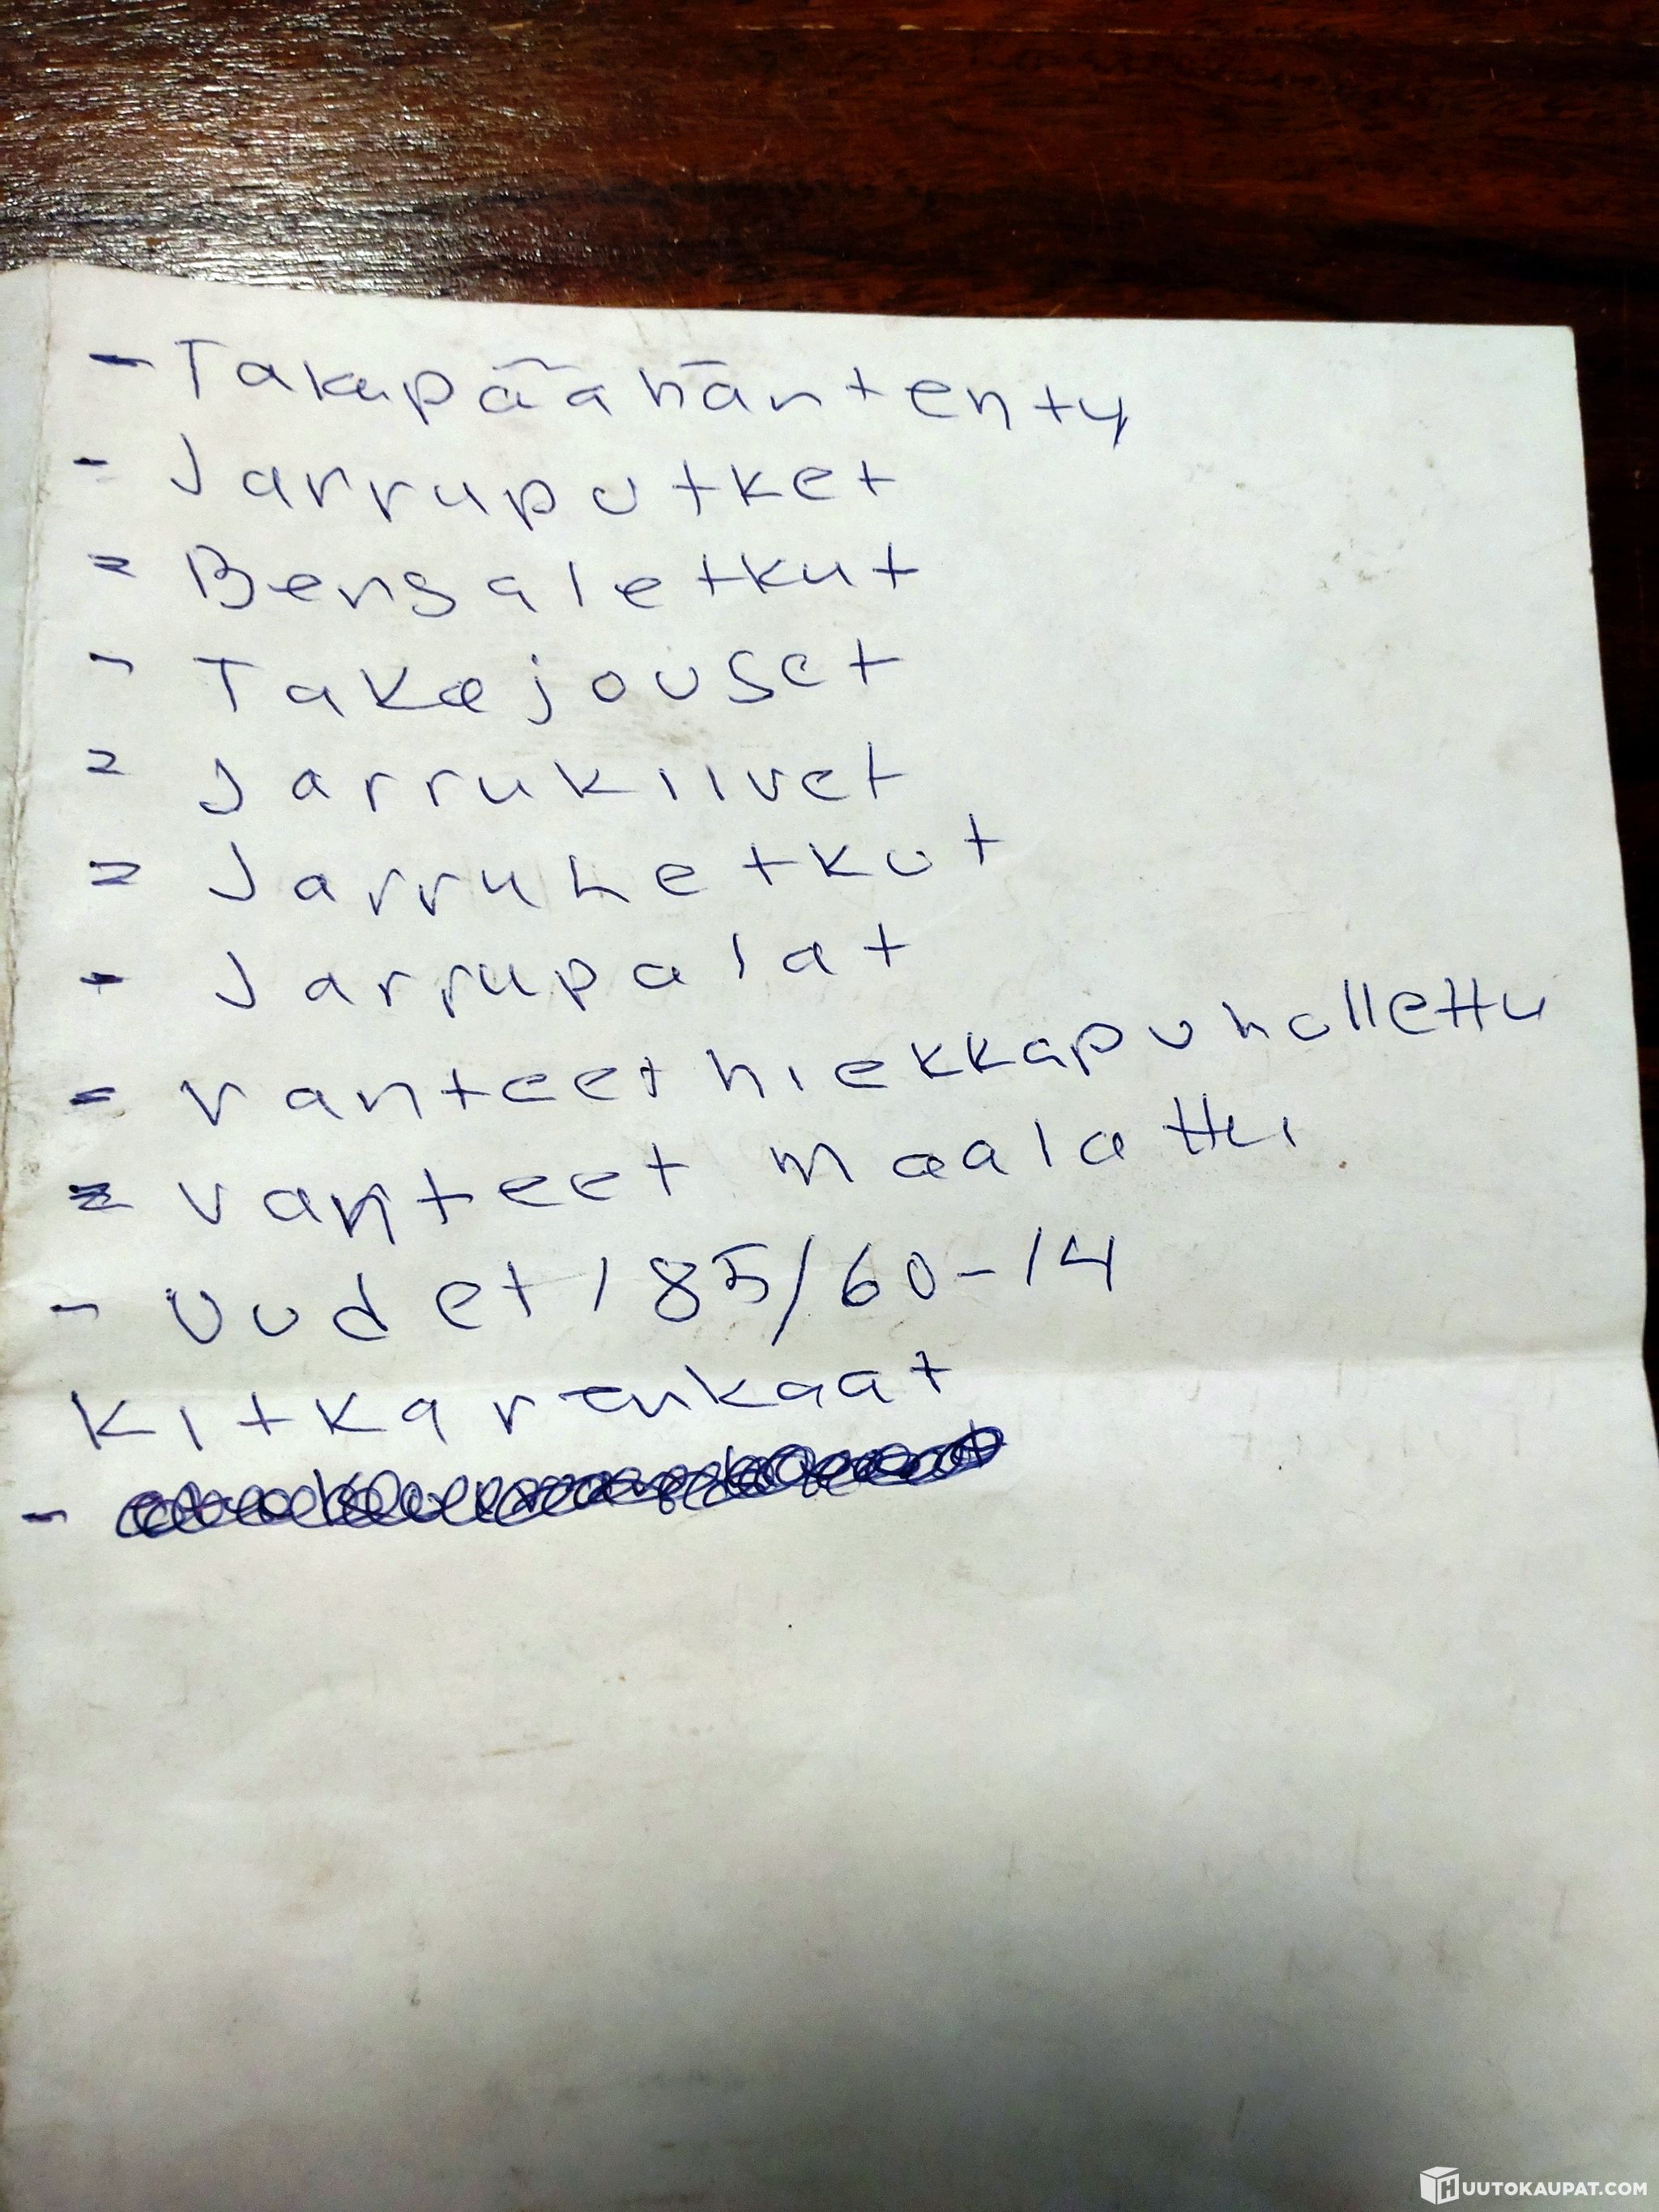 - Takapää hän+enty
- Jarruputket
= Bensaletkut
- Takajouset
= Jarrukiivet
= Jarruhetkut
- Jarrupalat
= vanteet hiekkapuhallettu
= vanteet maalattu
- Uudet 185/60-14
Kitkarenkaat
-
HUUTOKAUPAT.COM